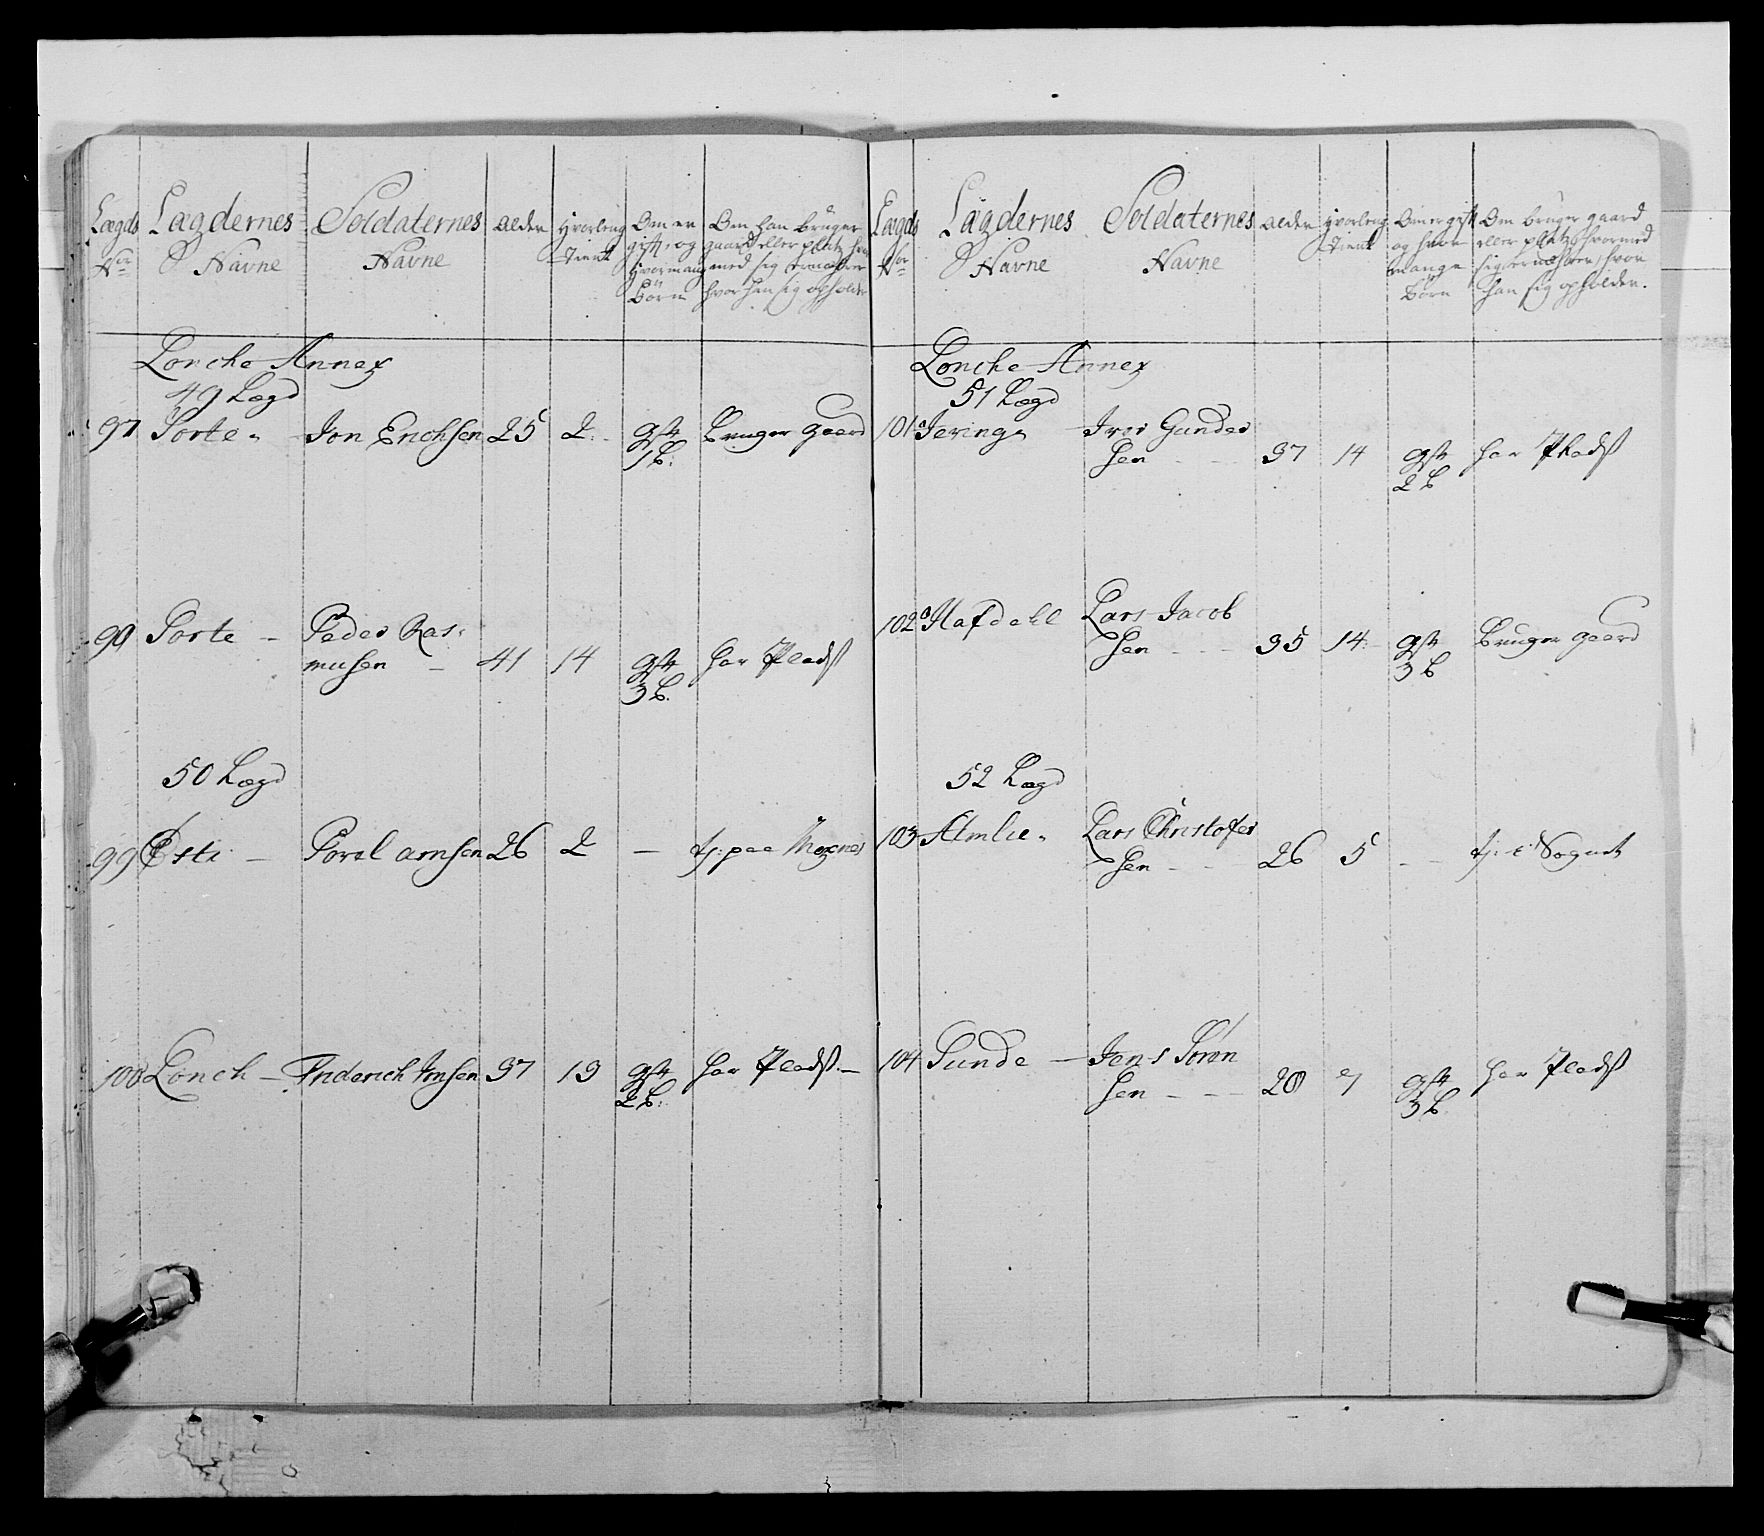 Lægds Lægdernes Soldaternes Alder Hvorleng Om er Om han bruger
Nor Navne Navne Tient gift, og gaard eller platz, hvor
hvormang med sig ernæhrer
Børn hvor han sig opholder
Lonche Annex
49 Lægd
97 Sorte Jon Erichsen 25 2 gift Bruger gaard
1 b:
98 Sorte Peder Ras:
musen 41 14 gift har Pladst
3 b.
50 Lægd
99 Østi Povel arnsen 26 2 tj: paa Moxnes
100 Lonch Friderich Jonsen 37 13 gift har Pladst
2 b:
Lægds Lægdernes Soldaternes Alder Hvorleng Om er gift Om bruger gaard
Nor Navne Navne Tient og hvor eller platz, hvormed
mange sig ernæhrer, hvor
børn han sig opholder.
Lonche Annex
51 Lægd
101 Iver Gunder
sen 37 14 gift har Pladst
2 b
102 Hafdell Lars Jacob
sen 35 14 gift Bruger gaard
3 b
52 Lægd
103 Almlie Lars Christofer
sen 26 5 tj: i Sognet
104 Sunde Jens Sørøn
sen 28 7 gift har Pladst
3 b